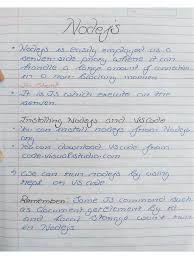 Nodejs
• Nodejs is easily employed as a
server side proxy where it can
handle a large amount of connection
in a non blocking manner
• It is JS which execute on the
server.
Installing Nodejs and VSCode
• You can install nodejs from Nodejs.
org
• You can download VS code from
code.visualstudio.com
• We can run nodejs by using
repl on VS code
Remember: Some JS command such
as document.getElement by id
and Local Storage won't run
in Nodejs